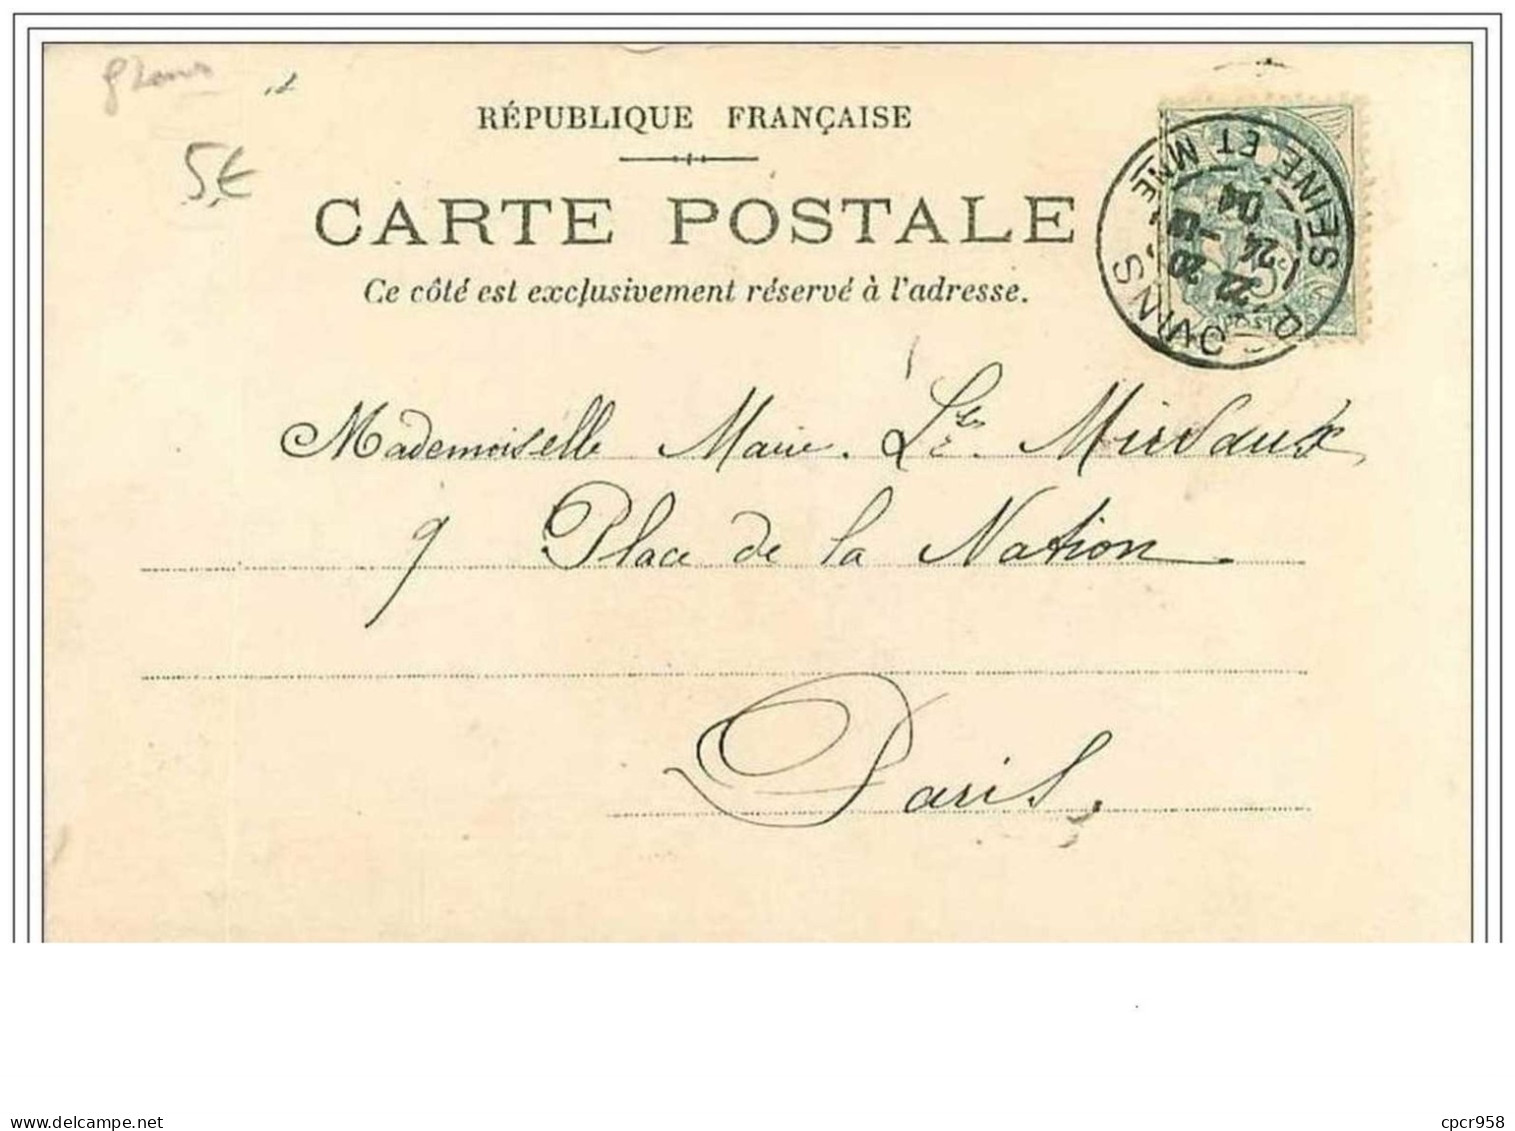 5€
RÉPUBLIQUE FRANÇAISE
CARTE POSTALE
Ce côté est exclusivement réservé à l'adresse.
PROVINS
SEINE ET MNE
24
04
Mademoiselle Marie. Mirvaux
9 Place de la Nation
Paris.
www.delcampe.net
cpcr958